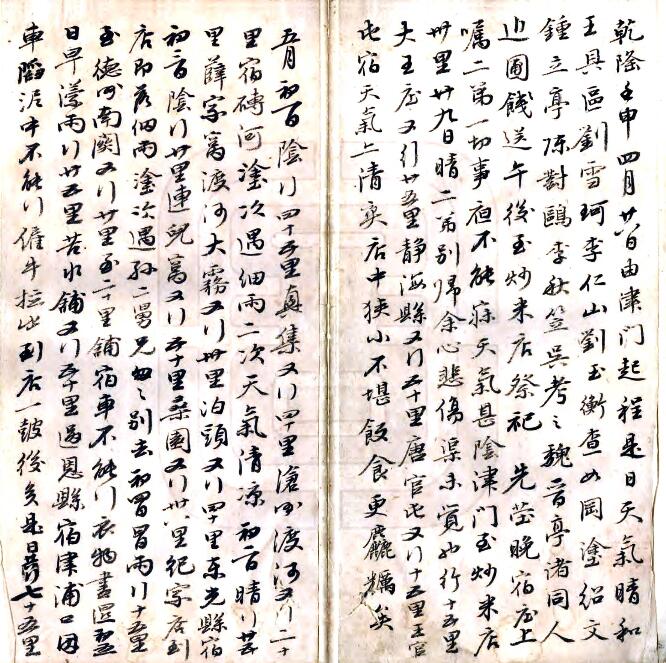 乾隆壬申四月廿八日由津門起程是日天氣晴和
王具區劉雪珂李仁山劉玉衡查如岡塗紹文
鍾立亭陈對鷗李秋笠吳考之魏晉亭諸同人
出圍餞送午後至炒米店祭祀先茔晚宿店上
嘱二弟一切事夜不能寐天氣甚陰津門至炒米店
卅里廿九日晴二弟別歸余心悲傷渠亦實行十五里
大王庄又行廿五里静海縣又行五十里唐官屯又行十五里王官
屯宿天氣上清爽店中狹小不堪飲食更麤糲矣
五月初一日陰行四十五里集又行四十里滄州渡河又行二十
里宿磚河塗次遇細雨二次天氣清凉初二日晴行廿五
里薛家窩渡河大霧又行卅里泊頭又行四十里東光縣宿
初三日陰行廿里連兒窩又行五十里桑園又行廿八里纪家店到
店即落细雨塗次遇孫二舅兄匆匆別去初四日冒雨行十五里
至德州南関又行廿里至二十里舖宿車不能行衣物書還
日早濛雨行廿五里苦水舖又行五十里過恩縣宿津浦口因
車陷泥中不能行僱牛拉出到店一皷後矣是日共行七十五里